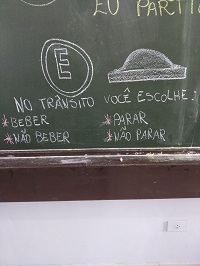 EU PARTI
E
NO TRÂNSITO VOCÊ ESCOLHE:
*BEBER *PARAR
*NÃO BEBER *NÃO PARAR